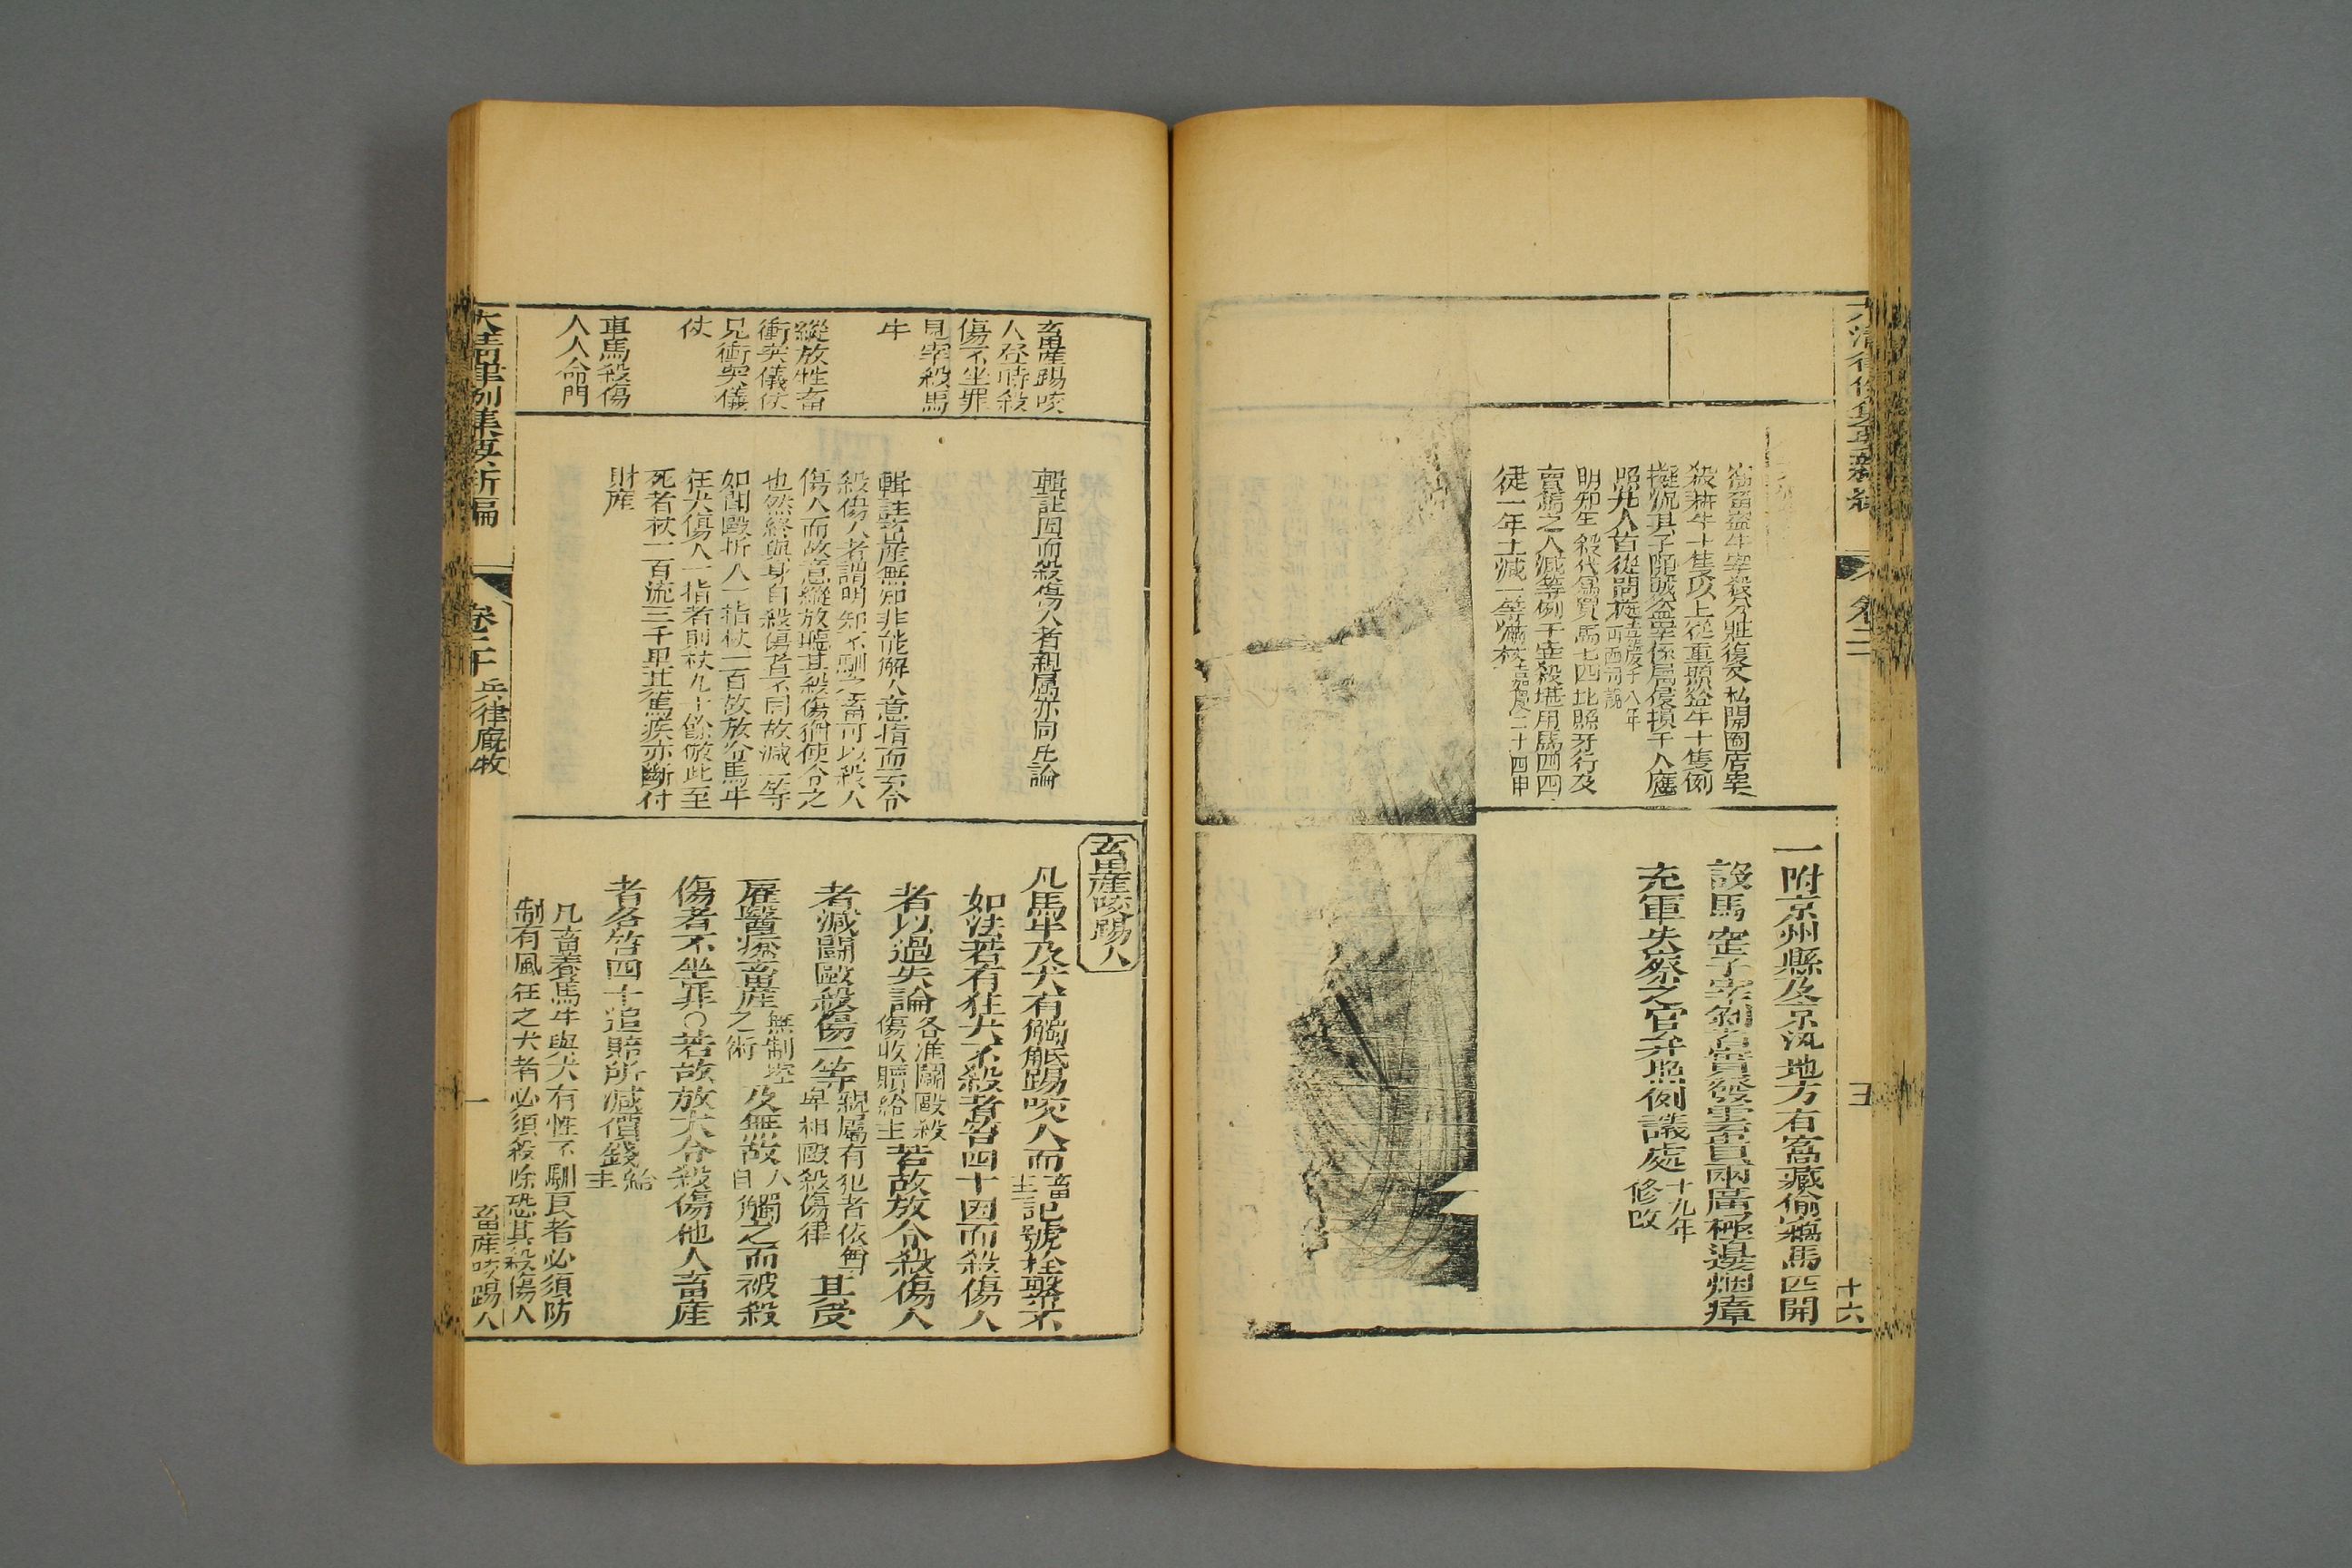 大清律例集要新編
卷二
十六
窩留盜牛宰殺分賍復又私開圈店案
殺耕牛十隻以上從重照盜牛十隻例
擬流其子隨同盜宰係屬侵損于人應
照凡人首從問擬嘉慶十八年西司說
明知宰殺代僱買馬七匹比照牙行及
賣馬之人減等例于宰殺堪用馬四匹
徒一年上減一等滿杖嘉慶二十四申
一附京州縣及京汛地方有窩藏偷竊馬匹開
設馬窂子宰剝者實發雲貴兩廣極邊烟瘴
充軍失察之官弁照例議處十九年修改
畜產踢咬
人登時殺
傷不坐罪
見宰殺馬
牛
縱放牲畜
衝突儀仗
見衝突儀
仗
車馬殺傷
人人命門
輯註因而殺傷人者親屬亦同凡論
輯註畜產無知非能解人意指而云令
殺傷人者謂明知不馴之畜可以殺人
傷人而故意縱放聽其殺傷猶使令之
也然終與身自殺傷者不同故減一等
如鬪毆折人一指杖一百故放令馬牛
狂犬傷人一指者則杖九十餘倣此至
死者杖一百流三千里其篤疾亦斷付
財產
畜產咬踢人
凡馬牛及犬有觸觝踢咬人而畜主記號拴繫不
如法若有狂犬不殺者笞四十因而殺傷人
者以過失論各准鬪毆殺傷收贖給主若故放令殺傷人
者減鬪毆殺傷一等親屬有犯者依尊卑相毆殺傷律其受
雇醫療畜產無制控之術及無故人自觸之而被殺
傷者不坐罪○若故放犬令殺傷他人畜產
者各笞四十追賠所減價錢給主
凡畜養馬牛與犬有性不馴良者必須防
制有風狂之犬者必須殺除恐其殺傷人
大清律例集要新編
卷二十
兵律廄牧
一
畜產咬踢人